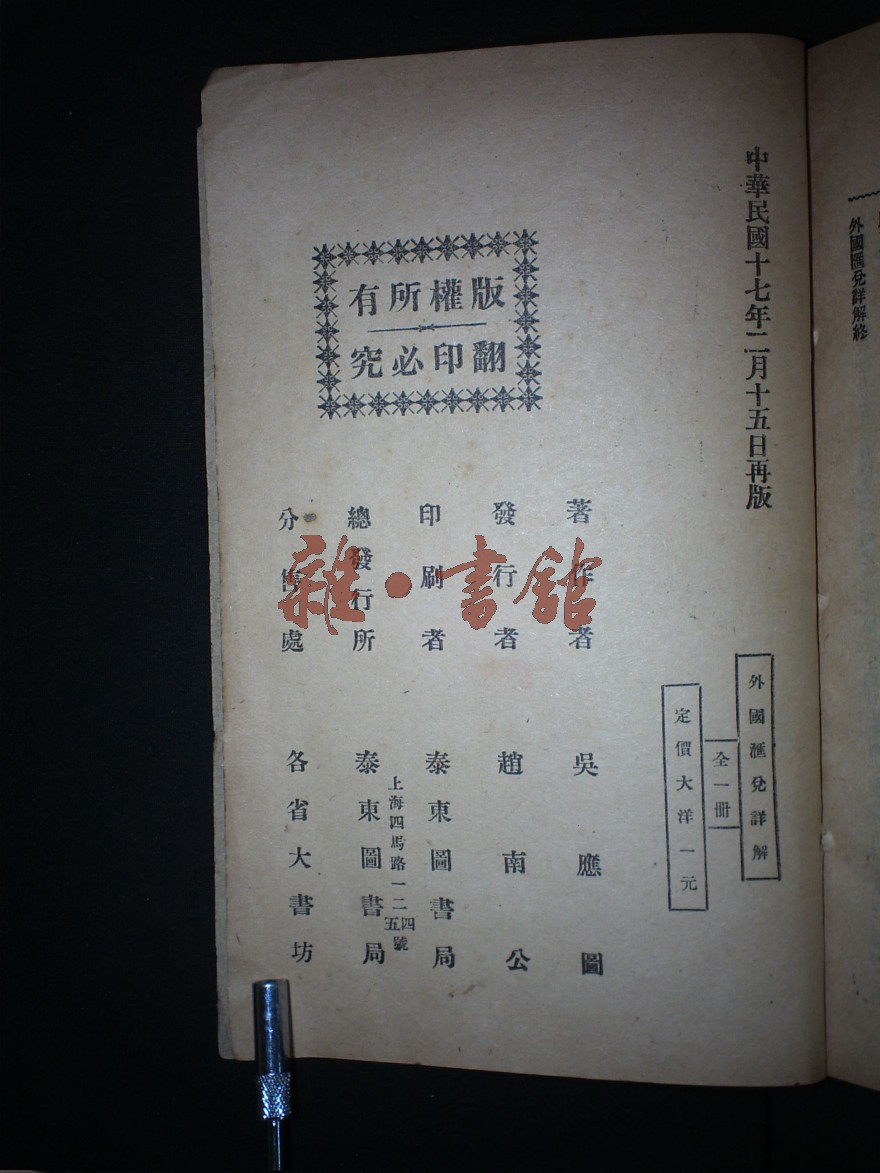 外國匯兌詳解終
中華民國十七年二月十五日再版
外國滙兌詳解
全一册
定價大洋一元
版權所有
翻印必究
著作者 吳應圖
發行者 趙南公
印刷者 泰東圖書局
上海四馬路一二四五號
總發行所 泰東圖書局
分售處 各省大書坊
雜·書館